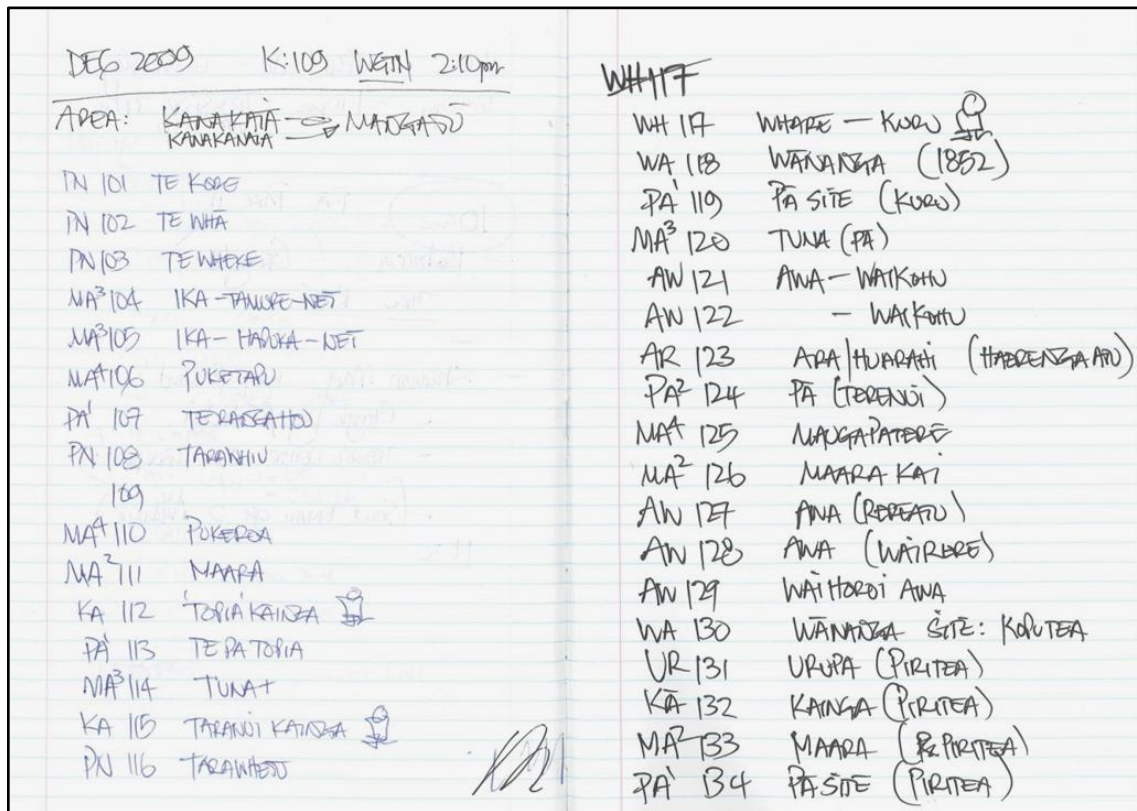 DEC 2009 K:109 WGTN 2:10pm
AREA: KANAKAIA MANGATU
KANAKANAIA
PN 101 TE KORE
PN 102 TE WHĀ
PN 103 TE WHEKE
MA³104 IKA-TAMURE-NET
MA³105 IKA-HAPUKA-NET
MA⁴106 PUKETAPU
PA¹ 107 TERANGAHOU
PN 108
109
MA⁴110 PUKEROA
MA²111 MAARA
KA 112 TOPIA KAINGA
PA¹ 113 TE PA TOPIA
MA³114 TUNA+
KA 115 TARANUI KAINGA
PN 116 TARAWHETU
WH117
WH 117 WHARE - KURU
WA 118 WĀNANGA (1852)
PA¹ 119 PĀ SITE (KURU)
MA³ 120 TUNA (PĀ)
AW 121 AWA-WAIKOHU
AW 122 - WAIKOHU
AR 123 ARA/HUARAHI (HAERENGA APU)
PA² 124 PĀ (TERENUI)
MA⁴ 125 MAUGAPATERE
MA² 126 MAARA KAI
AW 127 AWA (REPEATU)
AW 128 AWA (WAIRERE)
AW 129 WAIHOROI AWA
WA 130 WĀNANGA SITE: KOPUTEA
UR 131 URUPA (PIRITEA)
KĀ 132 KAINGA (PIRITEA)
MA² 133 MAARA (PIRITEA)
PA¹ 134 PA SITE (PIRITEA)